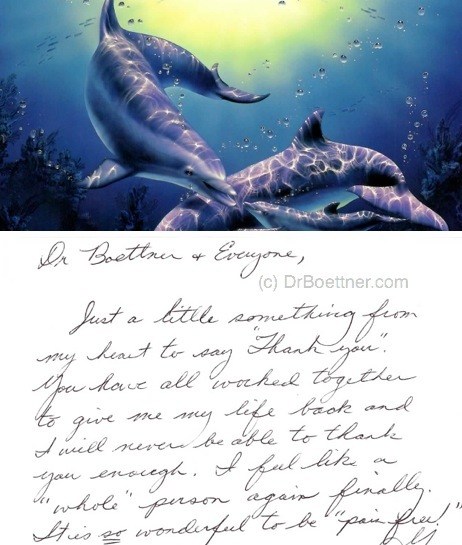 Dr Boettner + Everyone,
(c) DrBoettner.com
Just a little something from
my heart to say "Thank you".
You have all worked together
to give me my life back and
I will never be able to thank
you enough. I feel like a
"whole" person again finally.
It is so wonderful to be "pain free!"